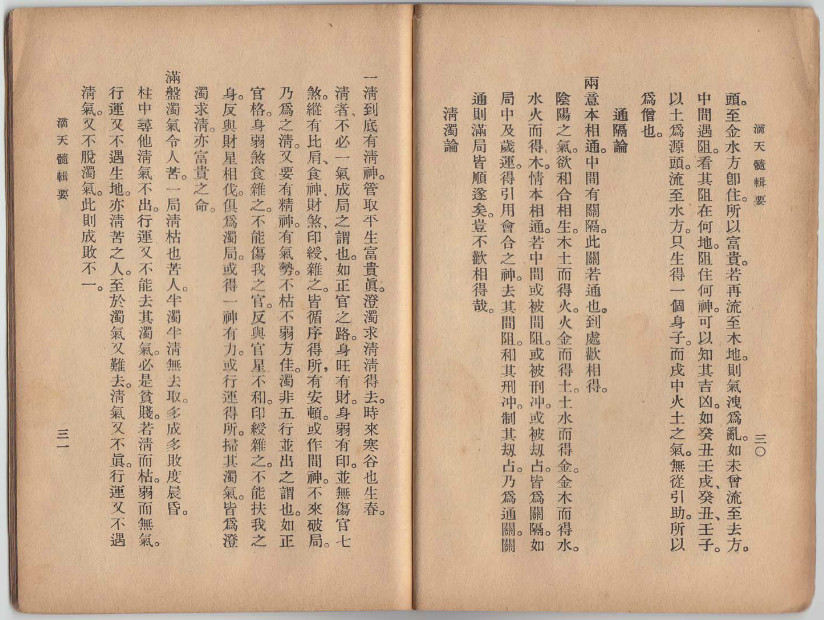 滴天髓輯要
三〇
頭。至金水方卽住。所以富貴。若再流至木地。則氣洩爲亂。如未曾流至去方。
中間遇阻。看其阻在何地。阻住何神。可以知其吉凶。如癸丑、壬戌、癸丑、壬子。
以土爲源頭。流至水方。只生得一個身子。而戌中火土之氣。無從引助。所以
爲僧也。
通隔論
兩意本相通。中間有關隔。此關若通也。到處歡相得。
陰陽之氣。欲和合相生。木土而得火。火金而得土。土水而得金。金木而得水。
水火而得木。情本相通。若中間或被間阻。或被刑冲。或被刼占。皆爲關隔。如
局中及歲運。得引用會合之神。去其間阻。和其刑冲。制其刼占。乃爲通關。關
通則滿局皆順遂矣。豈不歡相得哉。
淸濁論
一淸到底有淸神。管取平生富貴眞。澄濁求淸淸得去。時來寒谷也生春。
淸者、不必一氣成局之謂也。如正官之路。身旺有財。身弱有印。並無傷官七
煞。縱有比肩、食神、財煞、印綬、雜之。皆循序得所。有安頓。或作間神。不來破局。
乃爲之淸。又要有精神。有氣勢。不枯不弱方佳。濁非五行並出之謂也。如正
官格。身弱煞食雜之。不能傷我之官。反與官星不和。印綬雜之。不能扶我之
身。反與財星相伐。俱爲濁局。或得一神有力。或行運得所。掃其濁氣。皆爲澄
濁求淸。亦富貴之命。
滿盤濁氣令人苦。一局淸枯也苦人。半濁半淸無去取。多成多敗度晨昏。
柱中尋他淸氣不出。行運又不能去其濁氣。必是貧賤。若淸而枯。弱而無氣。
行運又不遇生地。亦淸苦之人。至於濁氣又難去。淸氣又不眞。行運又不遇
淸氣。又不脫濁氣。此則成敗不一。
滴天髓輯要
三一